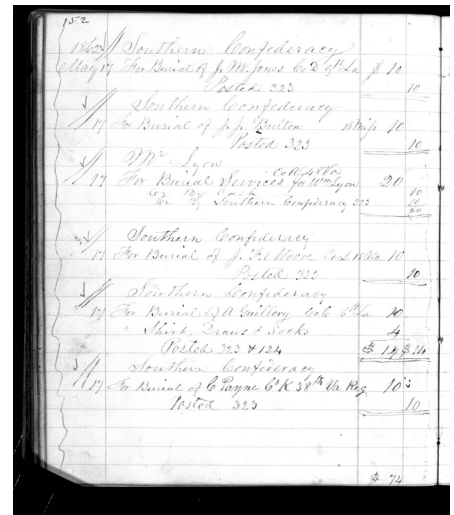 152
1862 Southern Confederacy
May 17 For Burial of J. M. Jones Co D 9th La $ 10
Posted 323 10
Southern Confederacy
17 For Burial of J. J. 18 Miss 10
Posted 323 10
Mr Lyon
Co A 48 Va
17 For Burial Services for Wm Lyon 20
Cr By Cash 10
Cr By Southern Confederacy 323 10
20
Southern Confederacy
17 For Burial of J. Co 10
Posted 323 10
Southern Confederacy
17 For Burial of A Guillory Co 6th La 10
" Shirt, Draws & Socks 4
Posted 323 & 124 $ 14 $ 14
Southern Confederacy
17 For Burial of C Payne Co K 38th Va Reg 10
Posted 323 10
$ 74